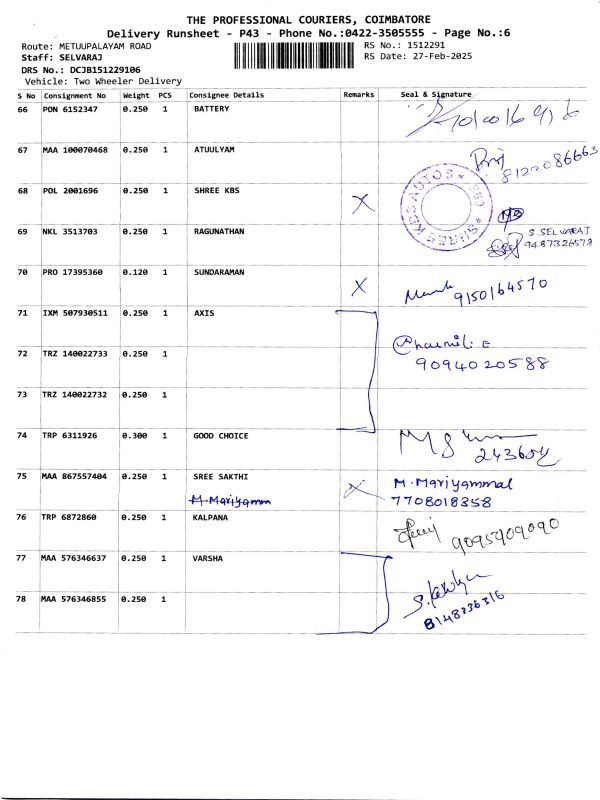 THE PROFESSIONAL COURIERS, COIMBATORE
Delivery Runsheet - P43 - Phone No.:0422-3505555 - Page No.:6
Route: METUUPALAYAM ROAD RS No.: 1512291
Staff: SELVARAJ RS Date: 27-Feb-2025
DRS No.: DCJB151229106
Vehicle: Two Wheeler Delivery
S No Consignment No Weight PCS Consignee Details Remarks Seal & Signature
66 PON 6152347 0.250 1 BATTERY
67 MAA 100070468 0.250 1 ATUULYAM
8122086663
68 POL 2001696 0.250 1 SHREE KBS X
SHREE KBS AUTOS
69 NKL 3513703 0.250 1 RAGUNATHAN
S SELVARAJ
9487326578
70 PRO 17395360 0.120 1 SUNDARAMAN X 9150164570
71 IXM 507930511 0.250 1 AXIS
72 TRZ 140022733 0.250 1
9094020588
73 TRZ 140022732 0.250 1
74 TRP 6311926 0.300 1 GOOD CHOICE
75 MAA 867557404 0.250 1 SREE SAKTHI X M. Mariyammal
M. Mariyamm 7708018358
76 TRP 6872860 0.250 1 KALPANA 9095909090
77 MAA 576346637 0.250 1 VARSHA
78 MAA 576346855 0.250 1
8148336316